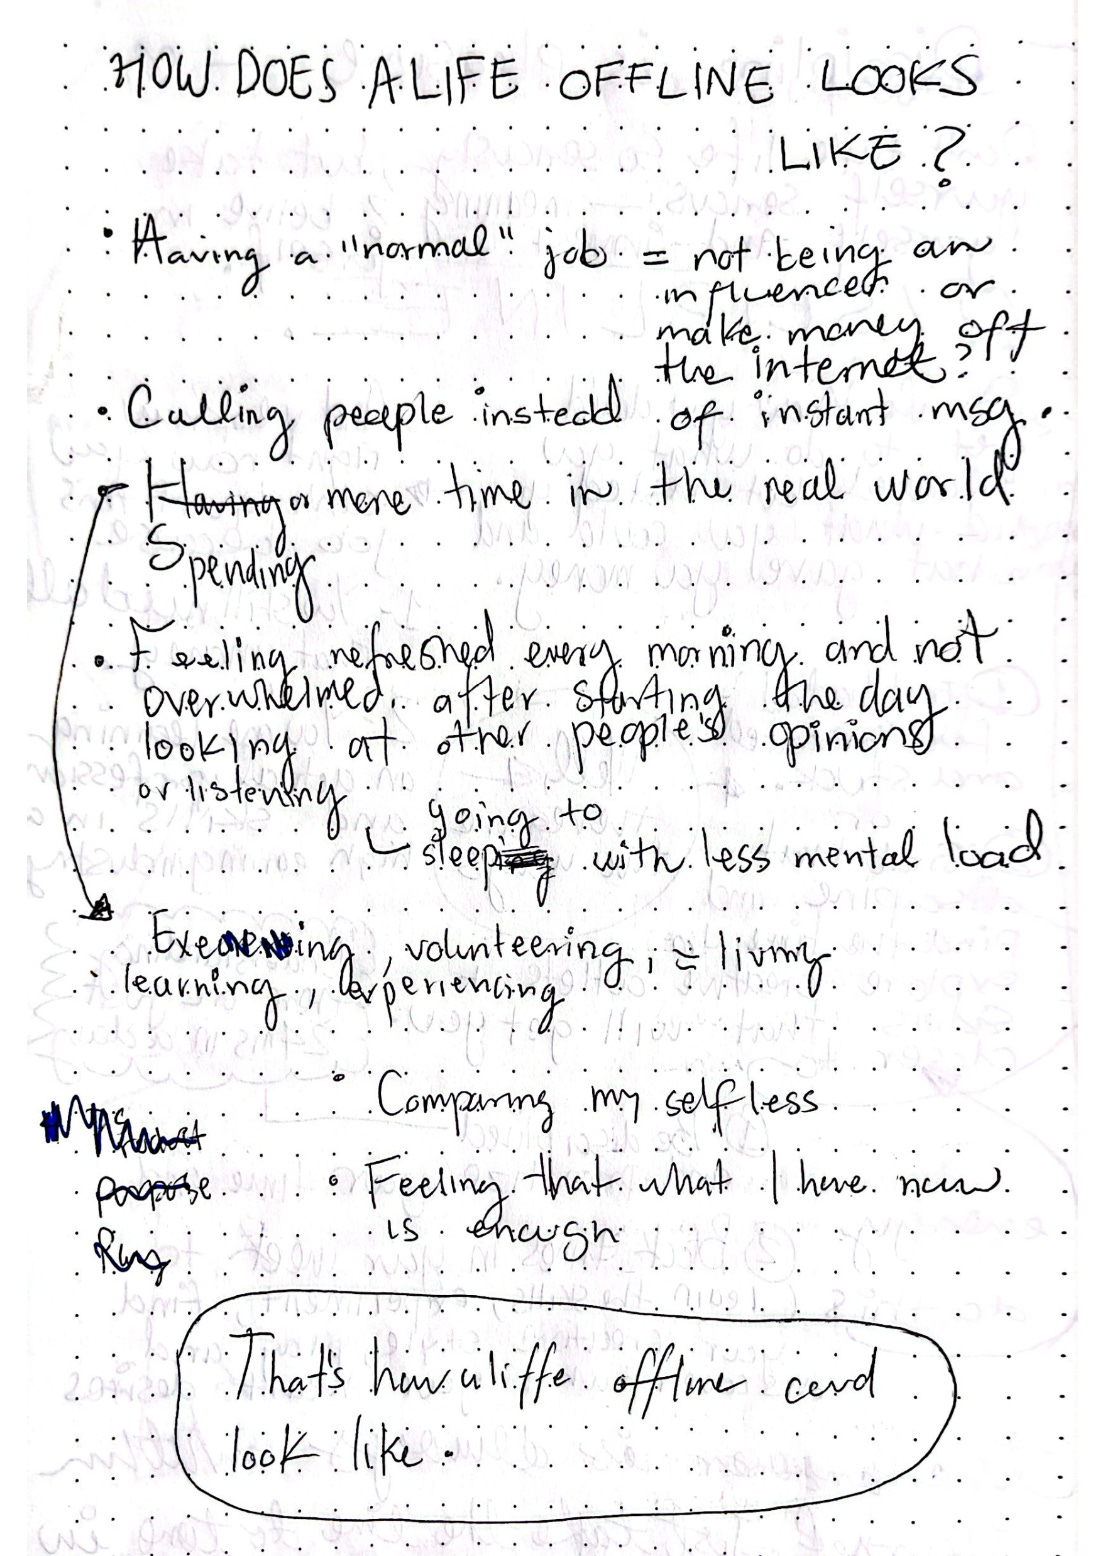 HOW DOES A LIFE OFFLINE LOOKS
LIKE ?
• Having a "normal" job = not being an
influencer or
make money off
the internet?
• Calling people instead of instant msg.
Having or more time in the real world
Spending
• Feeling refreshed every morning and not
overwhelmed after starting the day
looking at other people's opinions
or listening
going to
sleeping with less mental load
volunteering, ≃ living
• learning, experiencing
• Comparing my self less
purpose
• Feeling that what I have now
is enough
That's how a liffe offline
look like.